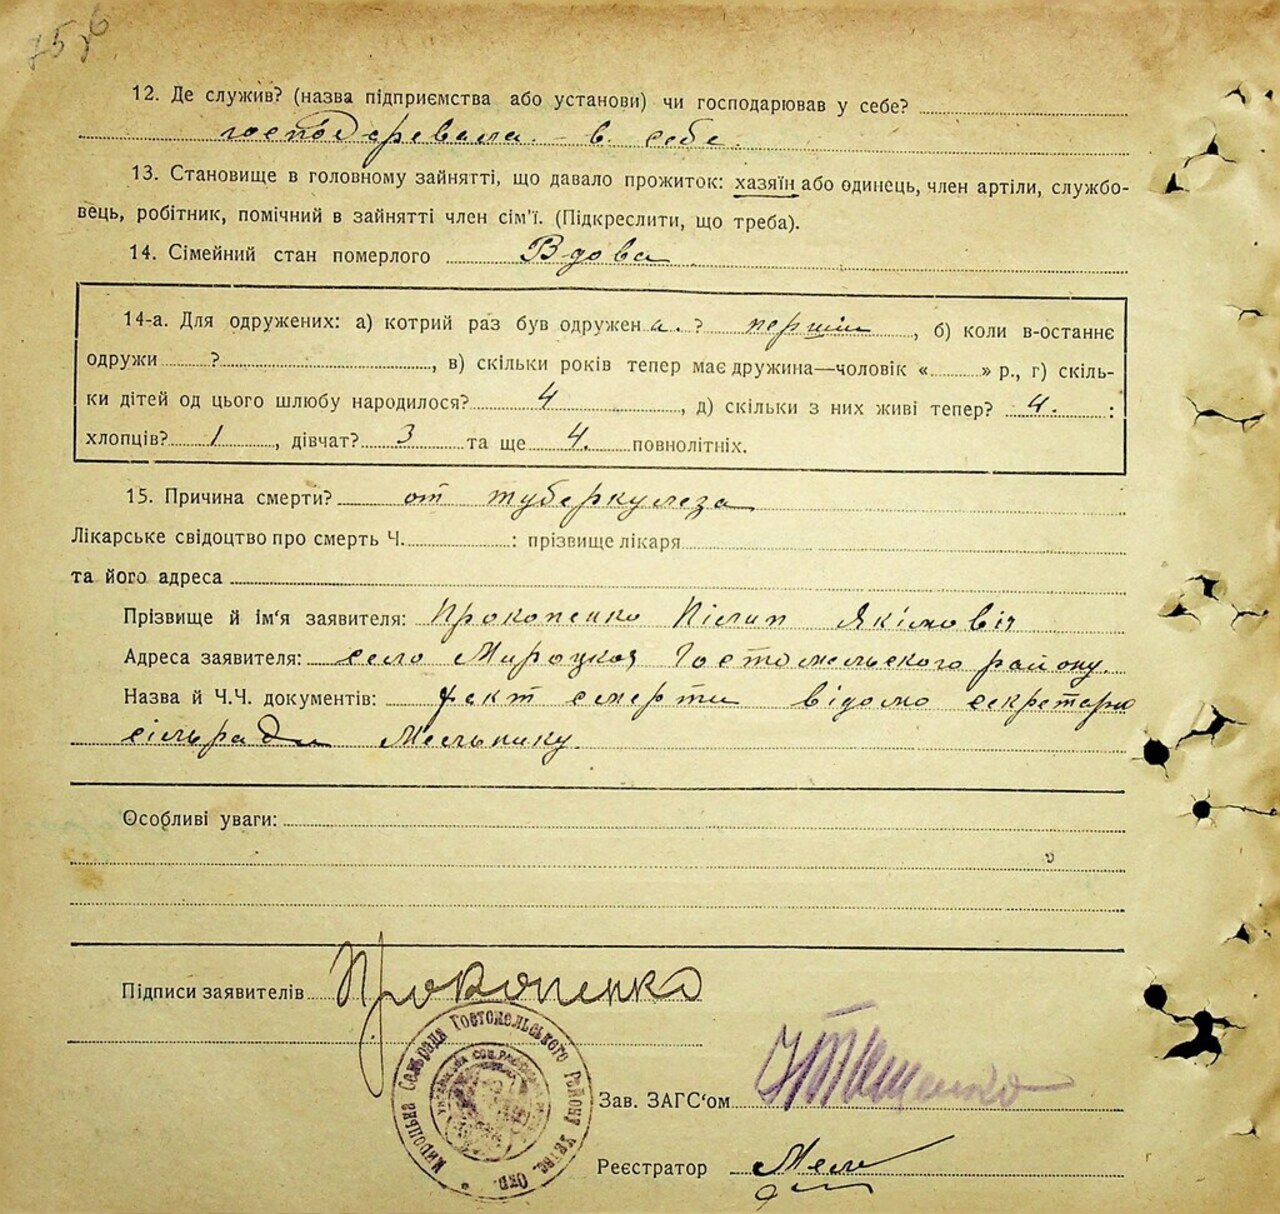 12. Де служив? (назва підприємства або установи) чи господарював у себе?
господаревала в себе.
13. Становище в головному зайнятті, що давало прожиток: хазяїн або одинець, член артіли, службо-
вець, робітник, помічний в зайнятті член сім'ї. (Підкреслити, що треба).
14. Сімейний стан померлого Вдова
14-а. Для одружених: а) котрий раз був одружен а. ? перший, б) коли в-останнє
одружи ?, в) скільки років тепер має дружина—чоловік « » р., г) скіль-
ки дітей од цього шлюбу народилося? 4, д) скільки з них живі тепер? 4. :
хлопців? 1, дівчат? 3 та ще 4. повнолітніх.
15. Причина смерти? от туберкулеза
Лікарське свідоцтво про смерть Ч. : прізвище лікаря
та його адреса
Прізвище й ім'я заявителя: Прокопенко Пілип Якімовіч
Адреса заявителя: село Мироцкоя Гостомельского району.
Назва й Ч.Ч. документів: факт смерти відомо секретарю
сільради Мельнику.
Особливі уваги:
Підписи заявителів Прокопенко
Сельрада Гостомельського Району
Зав. ЗАГС'ом
Реєстратор Мель